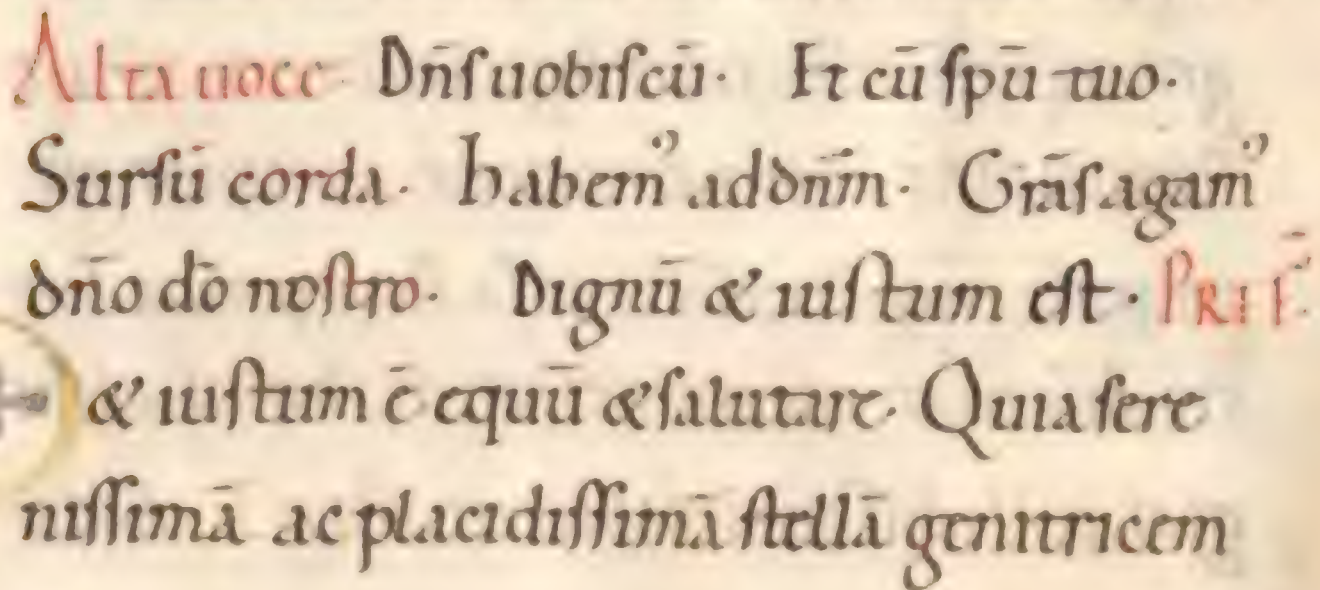 Alta uoce Dn̄ſ uobiſcū· Et cū ſpū tuo·
Surſū corda· habemꝰ ad dn̄m· Grāſ agamꝰ
dn̄o dō noſtro· Dignū & iuſtum eſt·
& iuſtum ē equū & ſalutare· Quia ſere
niſſimā ac placidiſſimā ſtellā genitricem